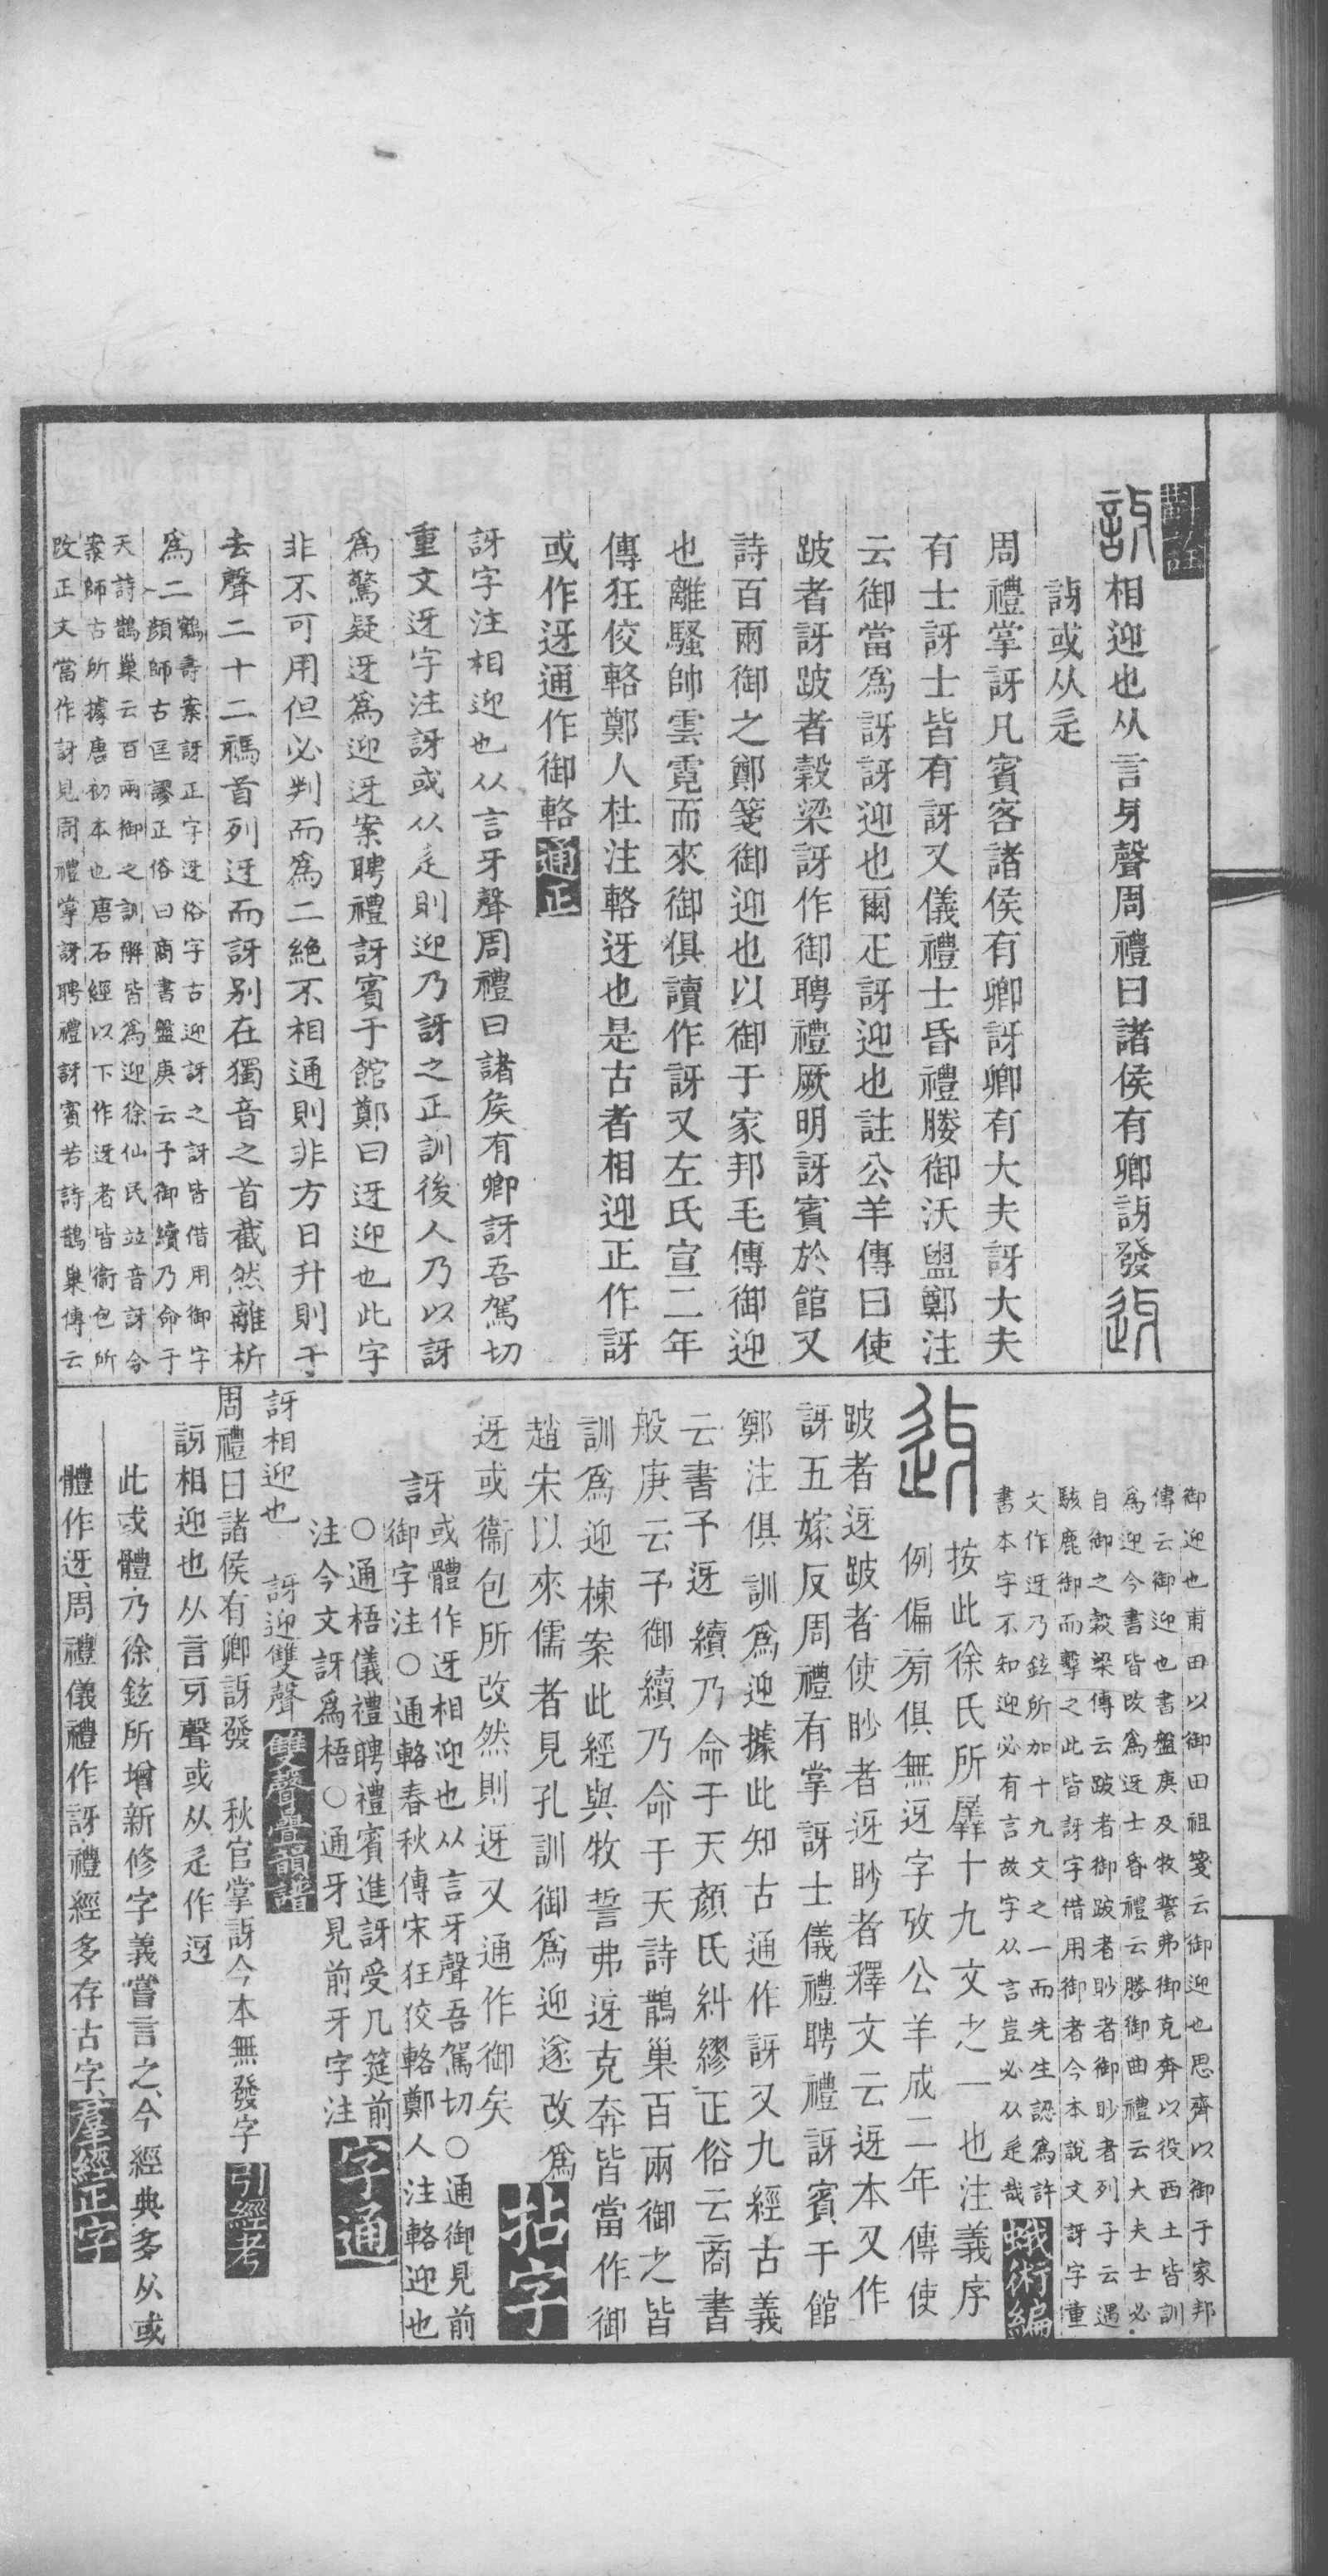 斠詮
訝相迎也从言牙聲周禮曰諸侯有卿訝發迓
訝或从辵
周禮掌訝凡賓客諸侯有卿訝卿有大夫訝大夫
有士訝士皆有訝又儀禮士昏禮媵御沃盥鄭注
云御當爲訝訝迎也爾疋訝迎也註公羊傳曰使
跛者訝跛者穀梁訝作御聘禮厥明訝賓於館又
詩百兩御之鄭箋御迎也以御于家邦毛傳御迎
也離騷帥雲霓而來御俱讀作訝又左氏宣二年
傳狂佼輅鄭人杜注輅迓也是古者相迎正作訝
或作迓通作御輅 通正
訝字注相迎也从言牙聲周禮曰諸侯有卿訝吾駕切
重文迓字注訝或从辵則迎乃訝之正訓後人乃以訝
爲驚疑迓爲迎迓案聘禮訝賓于館鄭曰迓迎也此字
非不可用但必判而爲二絕不相通則非方日升則于
去聲二十二禡首列迓而訝别在獨音之首截然離析
爲二
鶴壽案訝正字迓俗字古迎訝之訝皆借用御字
顏師古匡謬正俗曰商書盤庚云予御續乃命于
天詩鵲巢云百兩御之訓解皆爲迎徐仙民竝音訝今
案師古所據唐初本也唐石經以下作迓者皆衞包所
改正文當作訝見周禮掌訝聘禮訝賓若詩鵲巢傳云
御迎也甫田以御田祖箋云御迎也思齊以御于家邦
傳云御迎也書盤庚及牧誓弗御克奔以役西土皆訓
爲迎今書皆改爲迓士昏禮云媵御曲禮云大夫士必
自御之穀梁傳云跛者御跛者眇者御眇者列子云遇
駭鹿御而擊之此皆訝字借用御者今本說文訝字重
文作迓乃鉉所加十九文之一而先生認爲許
書本字不知迎必有言故字从言豈必从辵哉 蛾術編
迓 按此徐氏所羼十九文之一也注義序
例偏㫄俱無迓字攷公羊成二年傳使
跛者迓跛者使眇者迓眇者釋文云迓本又作
訝五嫁反周禮有掌訝士儀禮聘禮訝賓于館
鄭注俱訓爲迎據此知古通作訝又九經古義
云書予迓續乃命于天顏氏糾繆正俗云商書
般庚云予御續乃命于天詩鵲巢百兩御之皆
訓爲迎棟案此經與牧誓弗迓克奔皆當作御
趙宋以來儒者見孔訓御爲迎遂改爲
迓或衞包所改然則迓又通作御矣 拈字
訝 或體作迓相迎也从言牙聲吾駕切○通御見前
御字注○通輅春秋傳宋狂狡輅鄭人注輅迎也
○通梧儀禮聘禮賓進訝受几筵前
注今文訝爲梧○通牙見前牙字注 字通
訝相迎也 訝迎雙聲 雙聲疊韻譜
周禮曰諸侯有卿訝發 秋官掌訝今本無發字 引經考
訝相迎也从言牙聲或从辵作迓
此或體乃徐鉉所增新修字義嘗言之今經典多从或
體作迓周禮儀禮作訝禮經多存古字 羣經正字